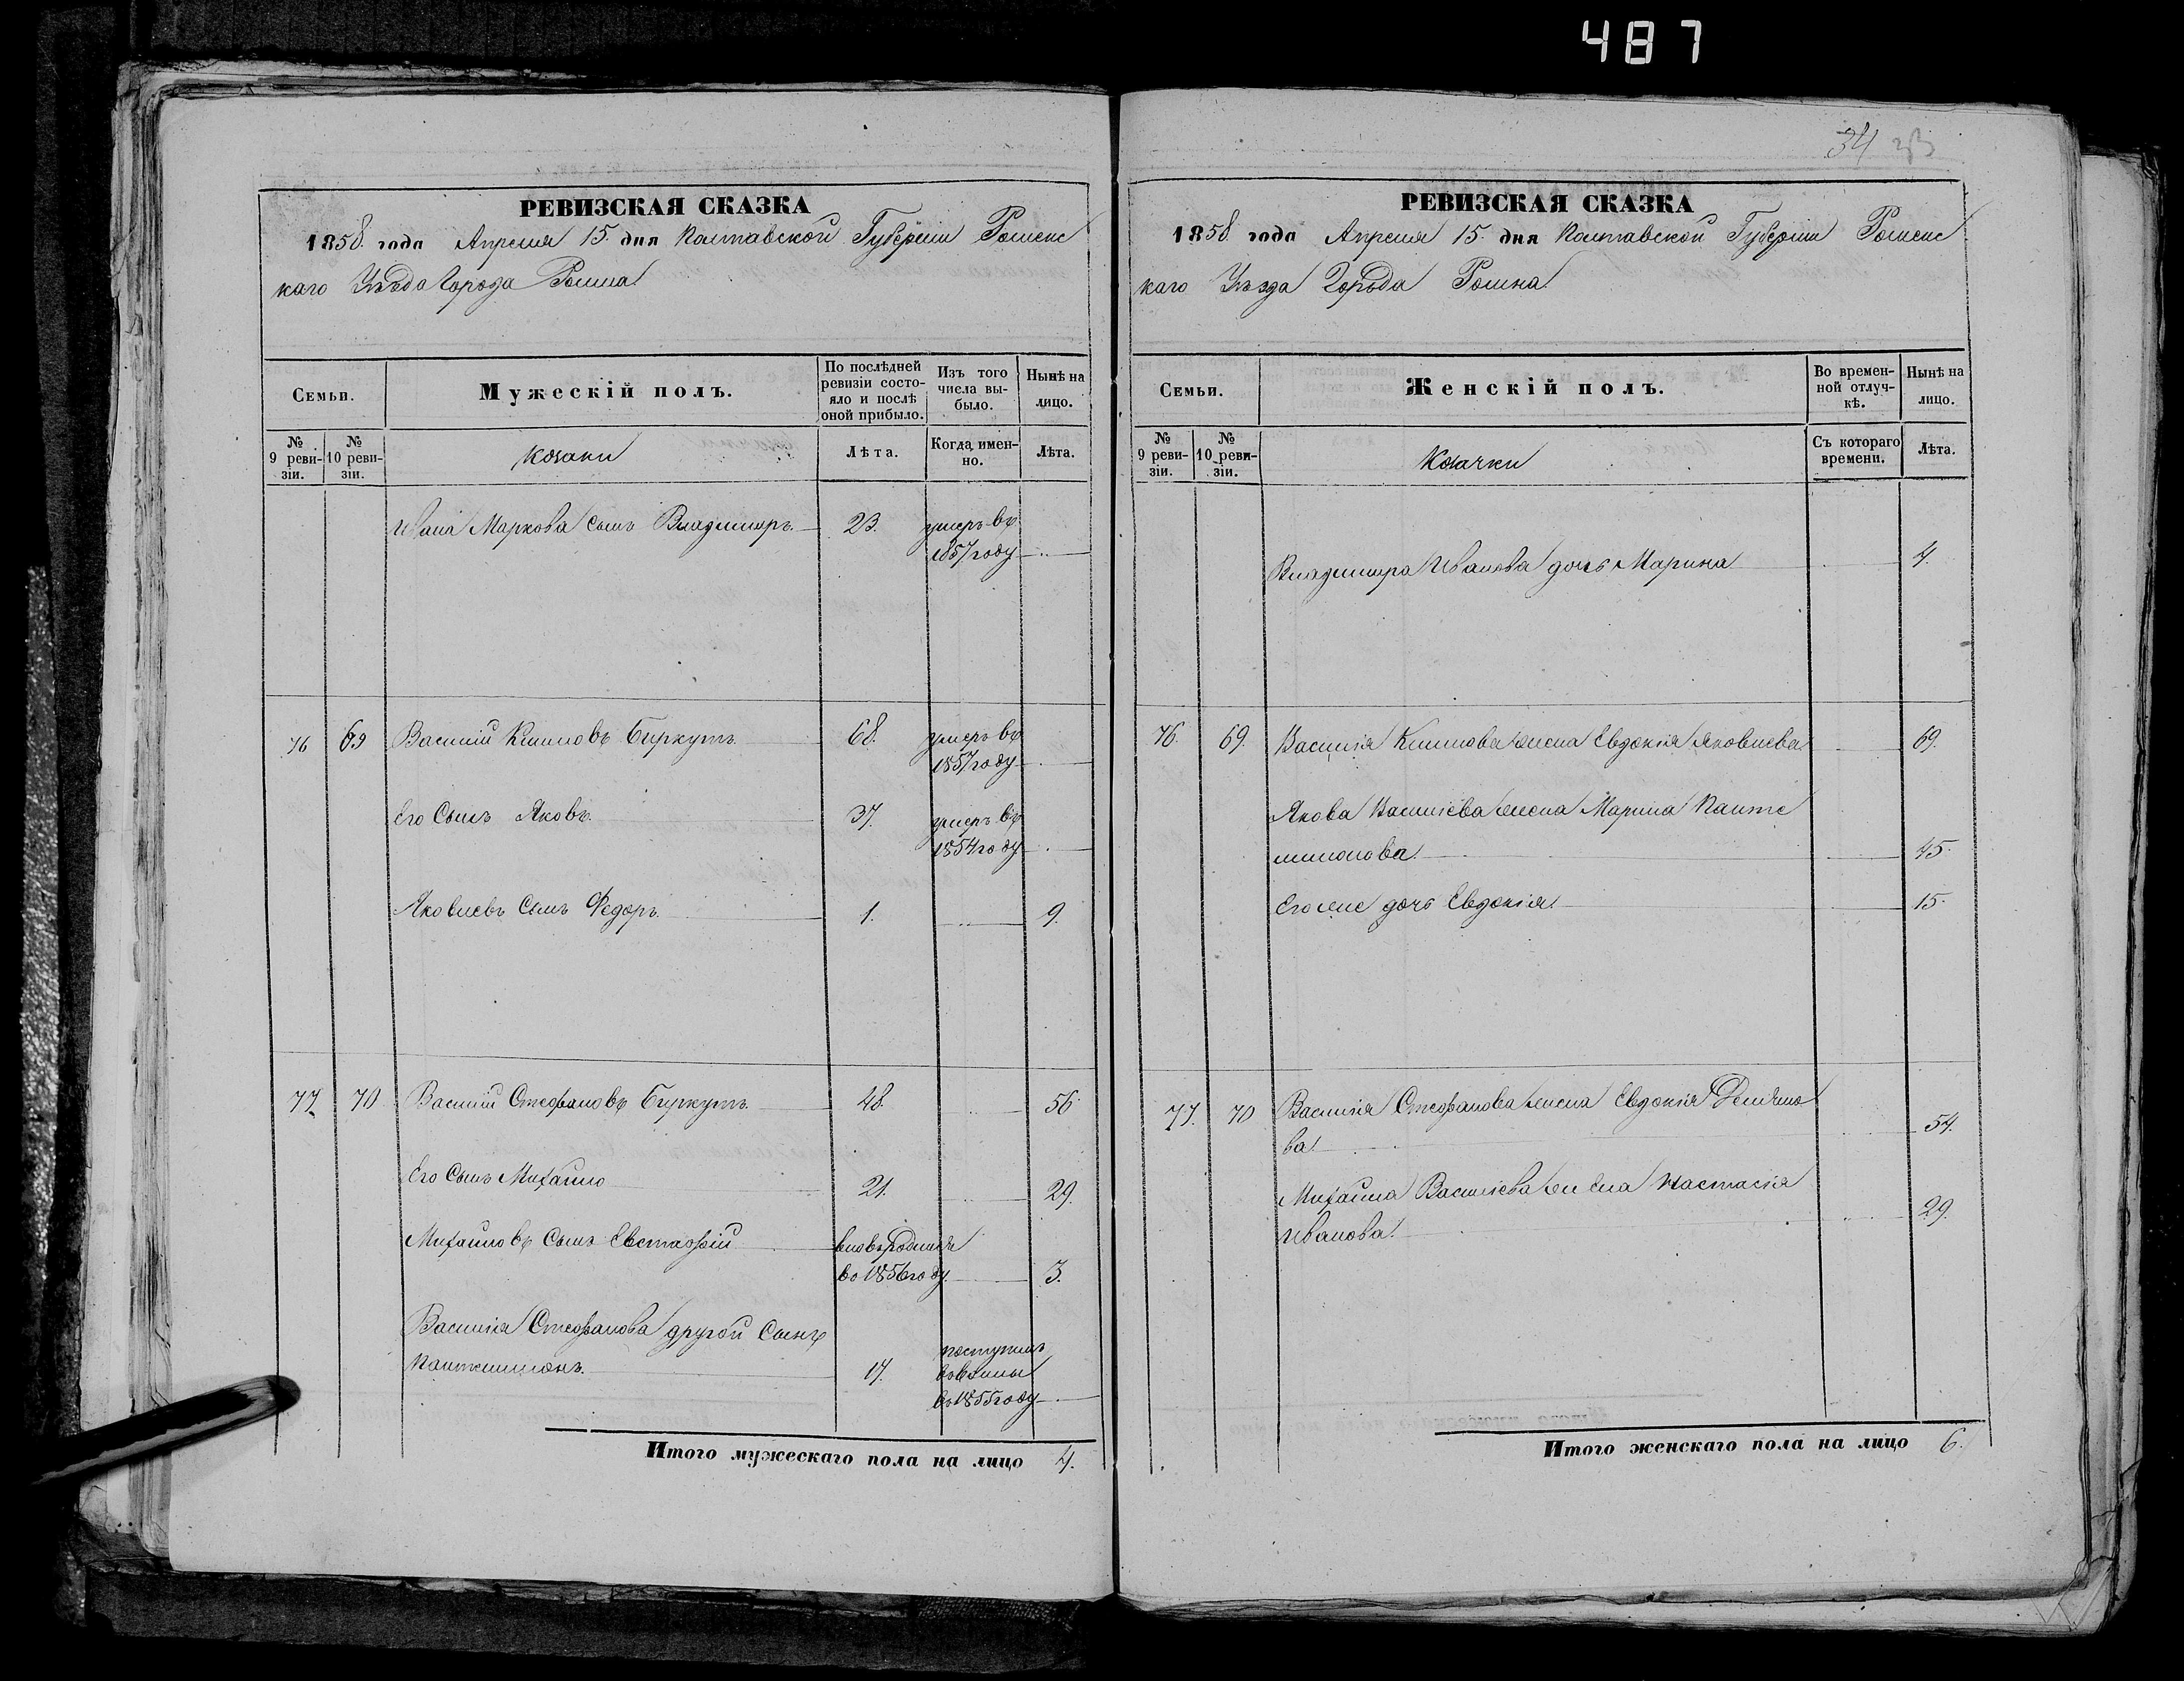 487
34
РЕВИЗСКАЯ СКАЗКА
1858. года Апреля 15. дня Полтавской Губерніи Роменс
каго Уѣзда Города Ромна
Семьи.
Мужескій полъ.
По послѣдней ревизіи состояло и послѣ оной прибыло.
Изъ того числа выбыло.
Нынѣ на лицо.
№ 9 ревизіи.
№ 10 ревизіи.
Козаки
Лѣта.
Когда именно.
Лѣта.
Ивана Маркова сынъ Владимиръ. 23. умеръ въ
1857 году
76 69 Василій Климовъ Биркутъ. 68. умеръ въ
1857 году
Его Сынъ Яковъ. 37. умеръ въ
1854 году
Яковлевъ Сынъ Федоръ. 1. 9.
77. 70 Василій Стефановъ Биркутъ. 48. 56
Его Сынъ Михайло 21. 29.
Михайловъ Сынъ Евстафій вновьродился
во 1856 году. 3.
Василія Стефанова другой Сынъ
Пантелимонъ. 17. поступилъ
въ 1855 году
Итого мужескаго пола на лицо 4.
РЕВИЗСКАЯ СКАЗКА
1858. года Апреля 15. дня Полтавской Губерніи Роменс
каго Уѣзда Города Ромна.
Семьи.
Женскій полъ.
Во временной отлучкѣ.
Нынѣ на лицо.
№ 9 ревизіи.
№ 10 ревизіи.
Козачки
Съ котораго времени.
Лѣта.
Владимира Иванова дочь Марина 4.
76. 69. Василія Климова жена Евдокія Яковлева 69.
Якова Васильева жена Марина Панте
лимонова 45.
Его же дочь Евдокія 15.
77. 70 Василія Стефанова жена Евдокія Демяно
ва 54.
Михайла Васильева жена Настасія
Иванова. 29.
Итого женскаго пола на лицо 6.